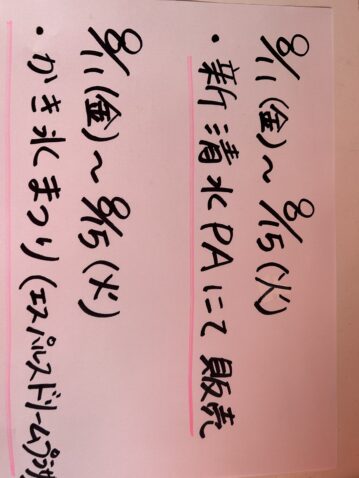 8/11(金)～8/15(火)
・新清水PAにて販売
8/11(金)～8/15(火)
・かき氷まつり(エスパルスドリームプラザ